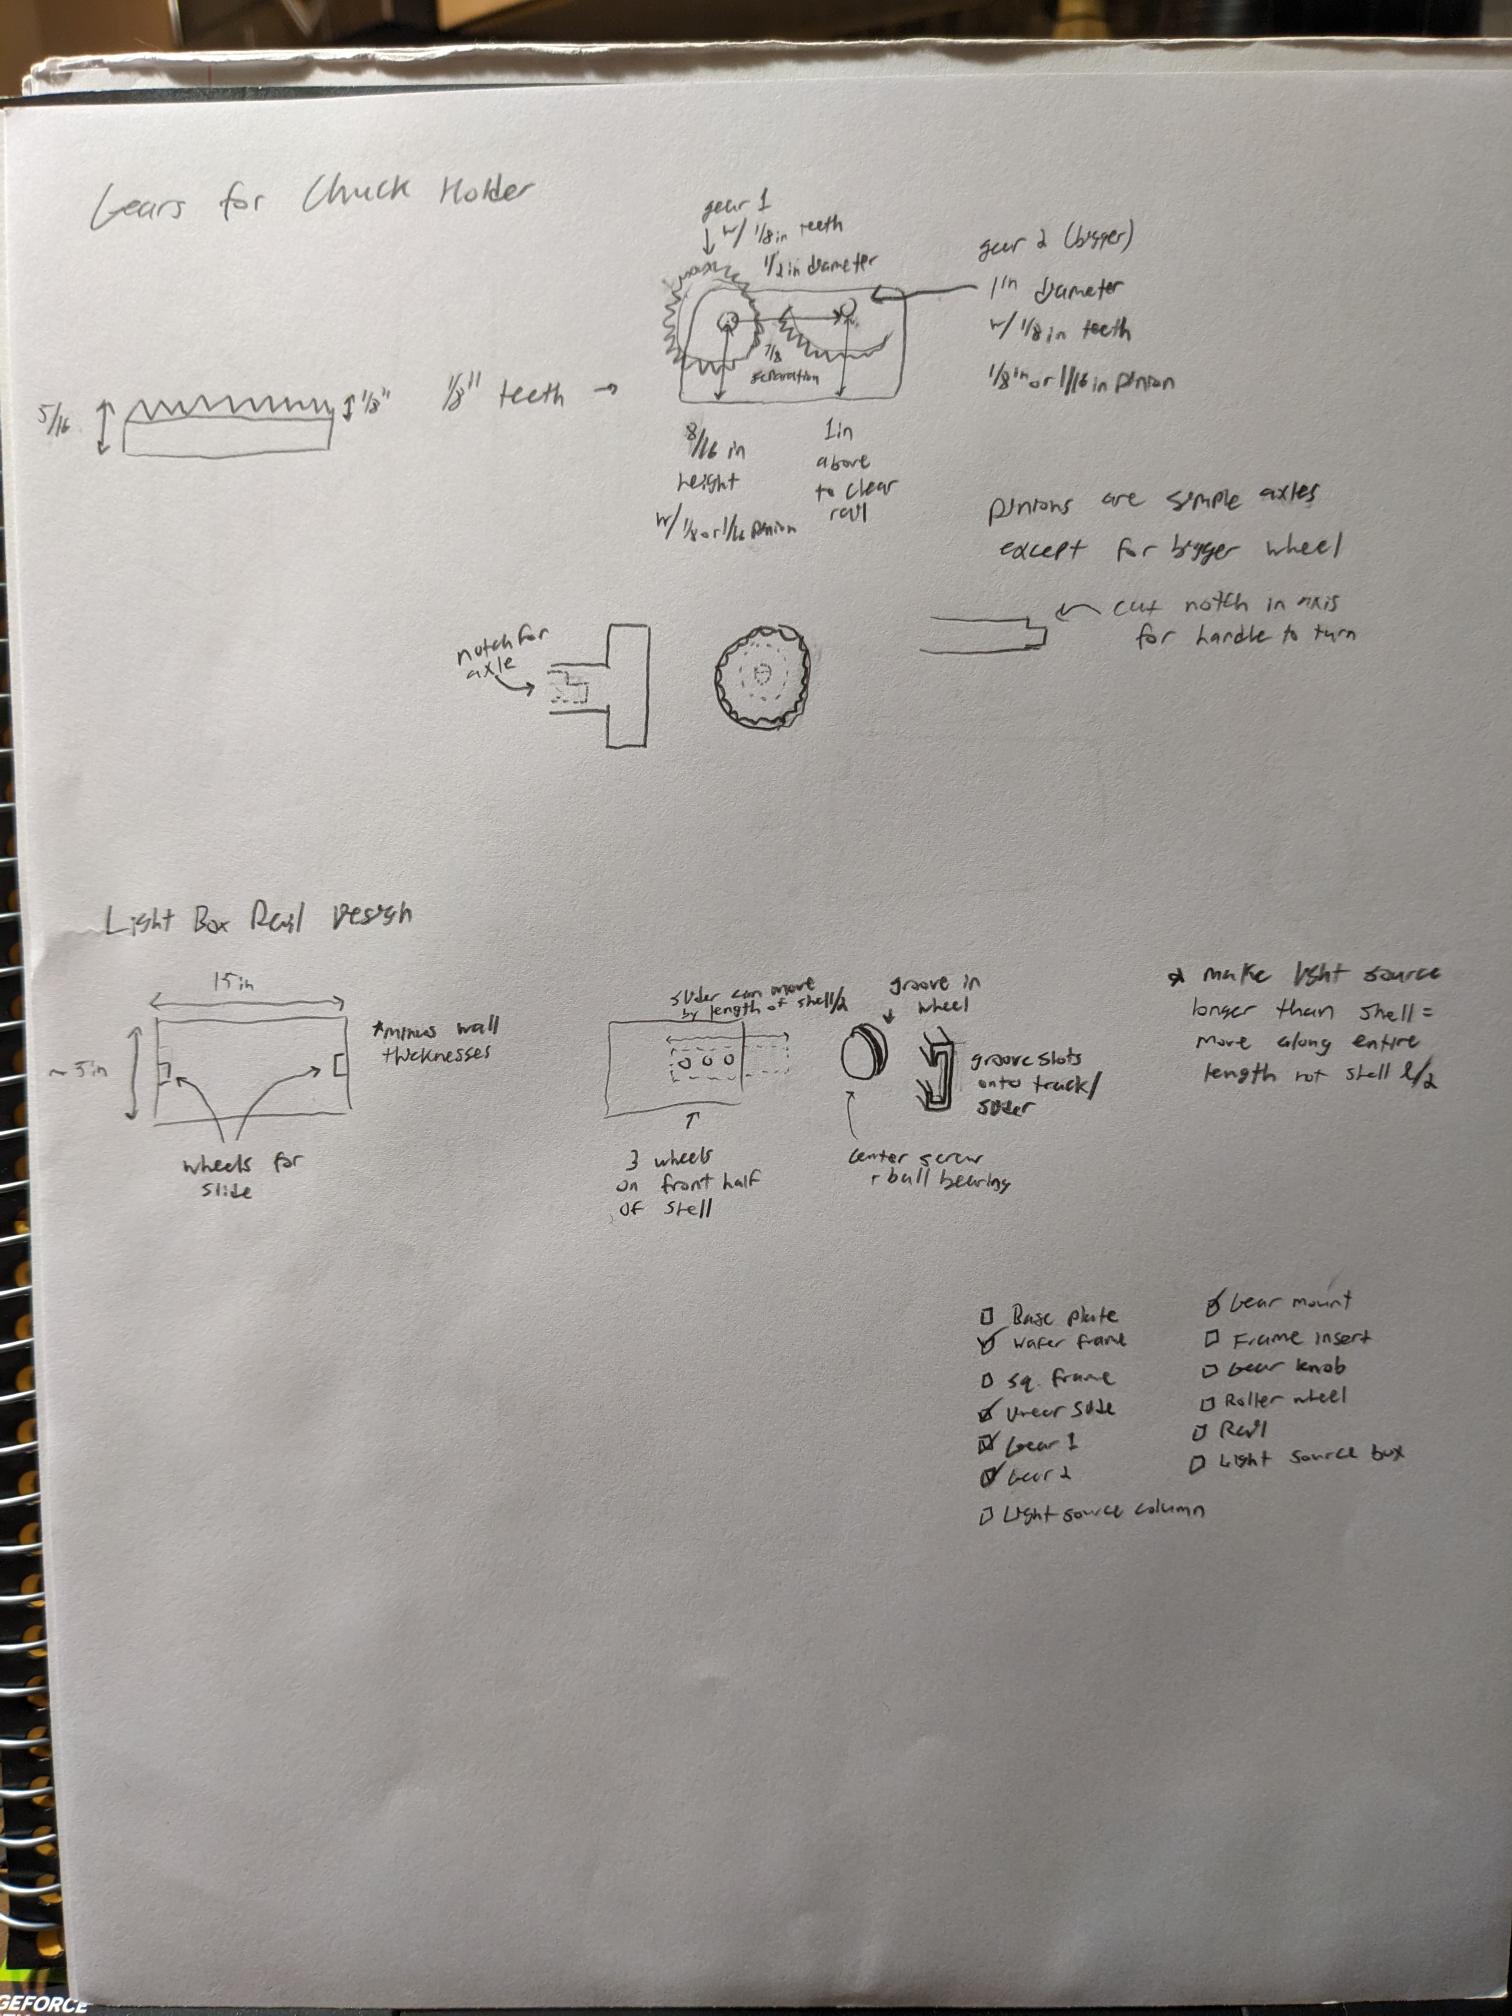 Gears for Chuck Holder
gear 1
w/ 1/8 in teeth
1/2 in diameter
gear 2 (bigger)
1in diameter
w/ 1/8 in teeth
1/8in or 1/16 in pinion
7/8
separation
5/16
1/8"
1/8" teeth
8/16 in
height
w/ 1/8 or 1/16 pinion
1in
above
to clear
rail
pinions are simple axles
except for bigger wheel
cut notch in axis
for handle to turn
notch for
axle
Light Box Rail Design
15in
~5in
*minus wall
thicknesses
wheels for
slide
slider can move
by length of shell/2
3 wheels
on front half
of shell
groove in
wheel
groove slots
onto track/
slider
center screw
+ ball bearing
* make light source
longer than shell =
move along entire
length not shell l/2
Base plate
Wafer frame
sq. frame
Linear slide
Gear 1
Gear 2
Light source column
Gear mount
Frame insert
Gear knob
Roller wheel
Rail
Light source box
GEFORCE